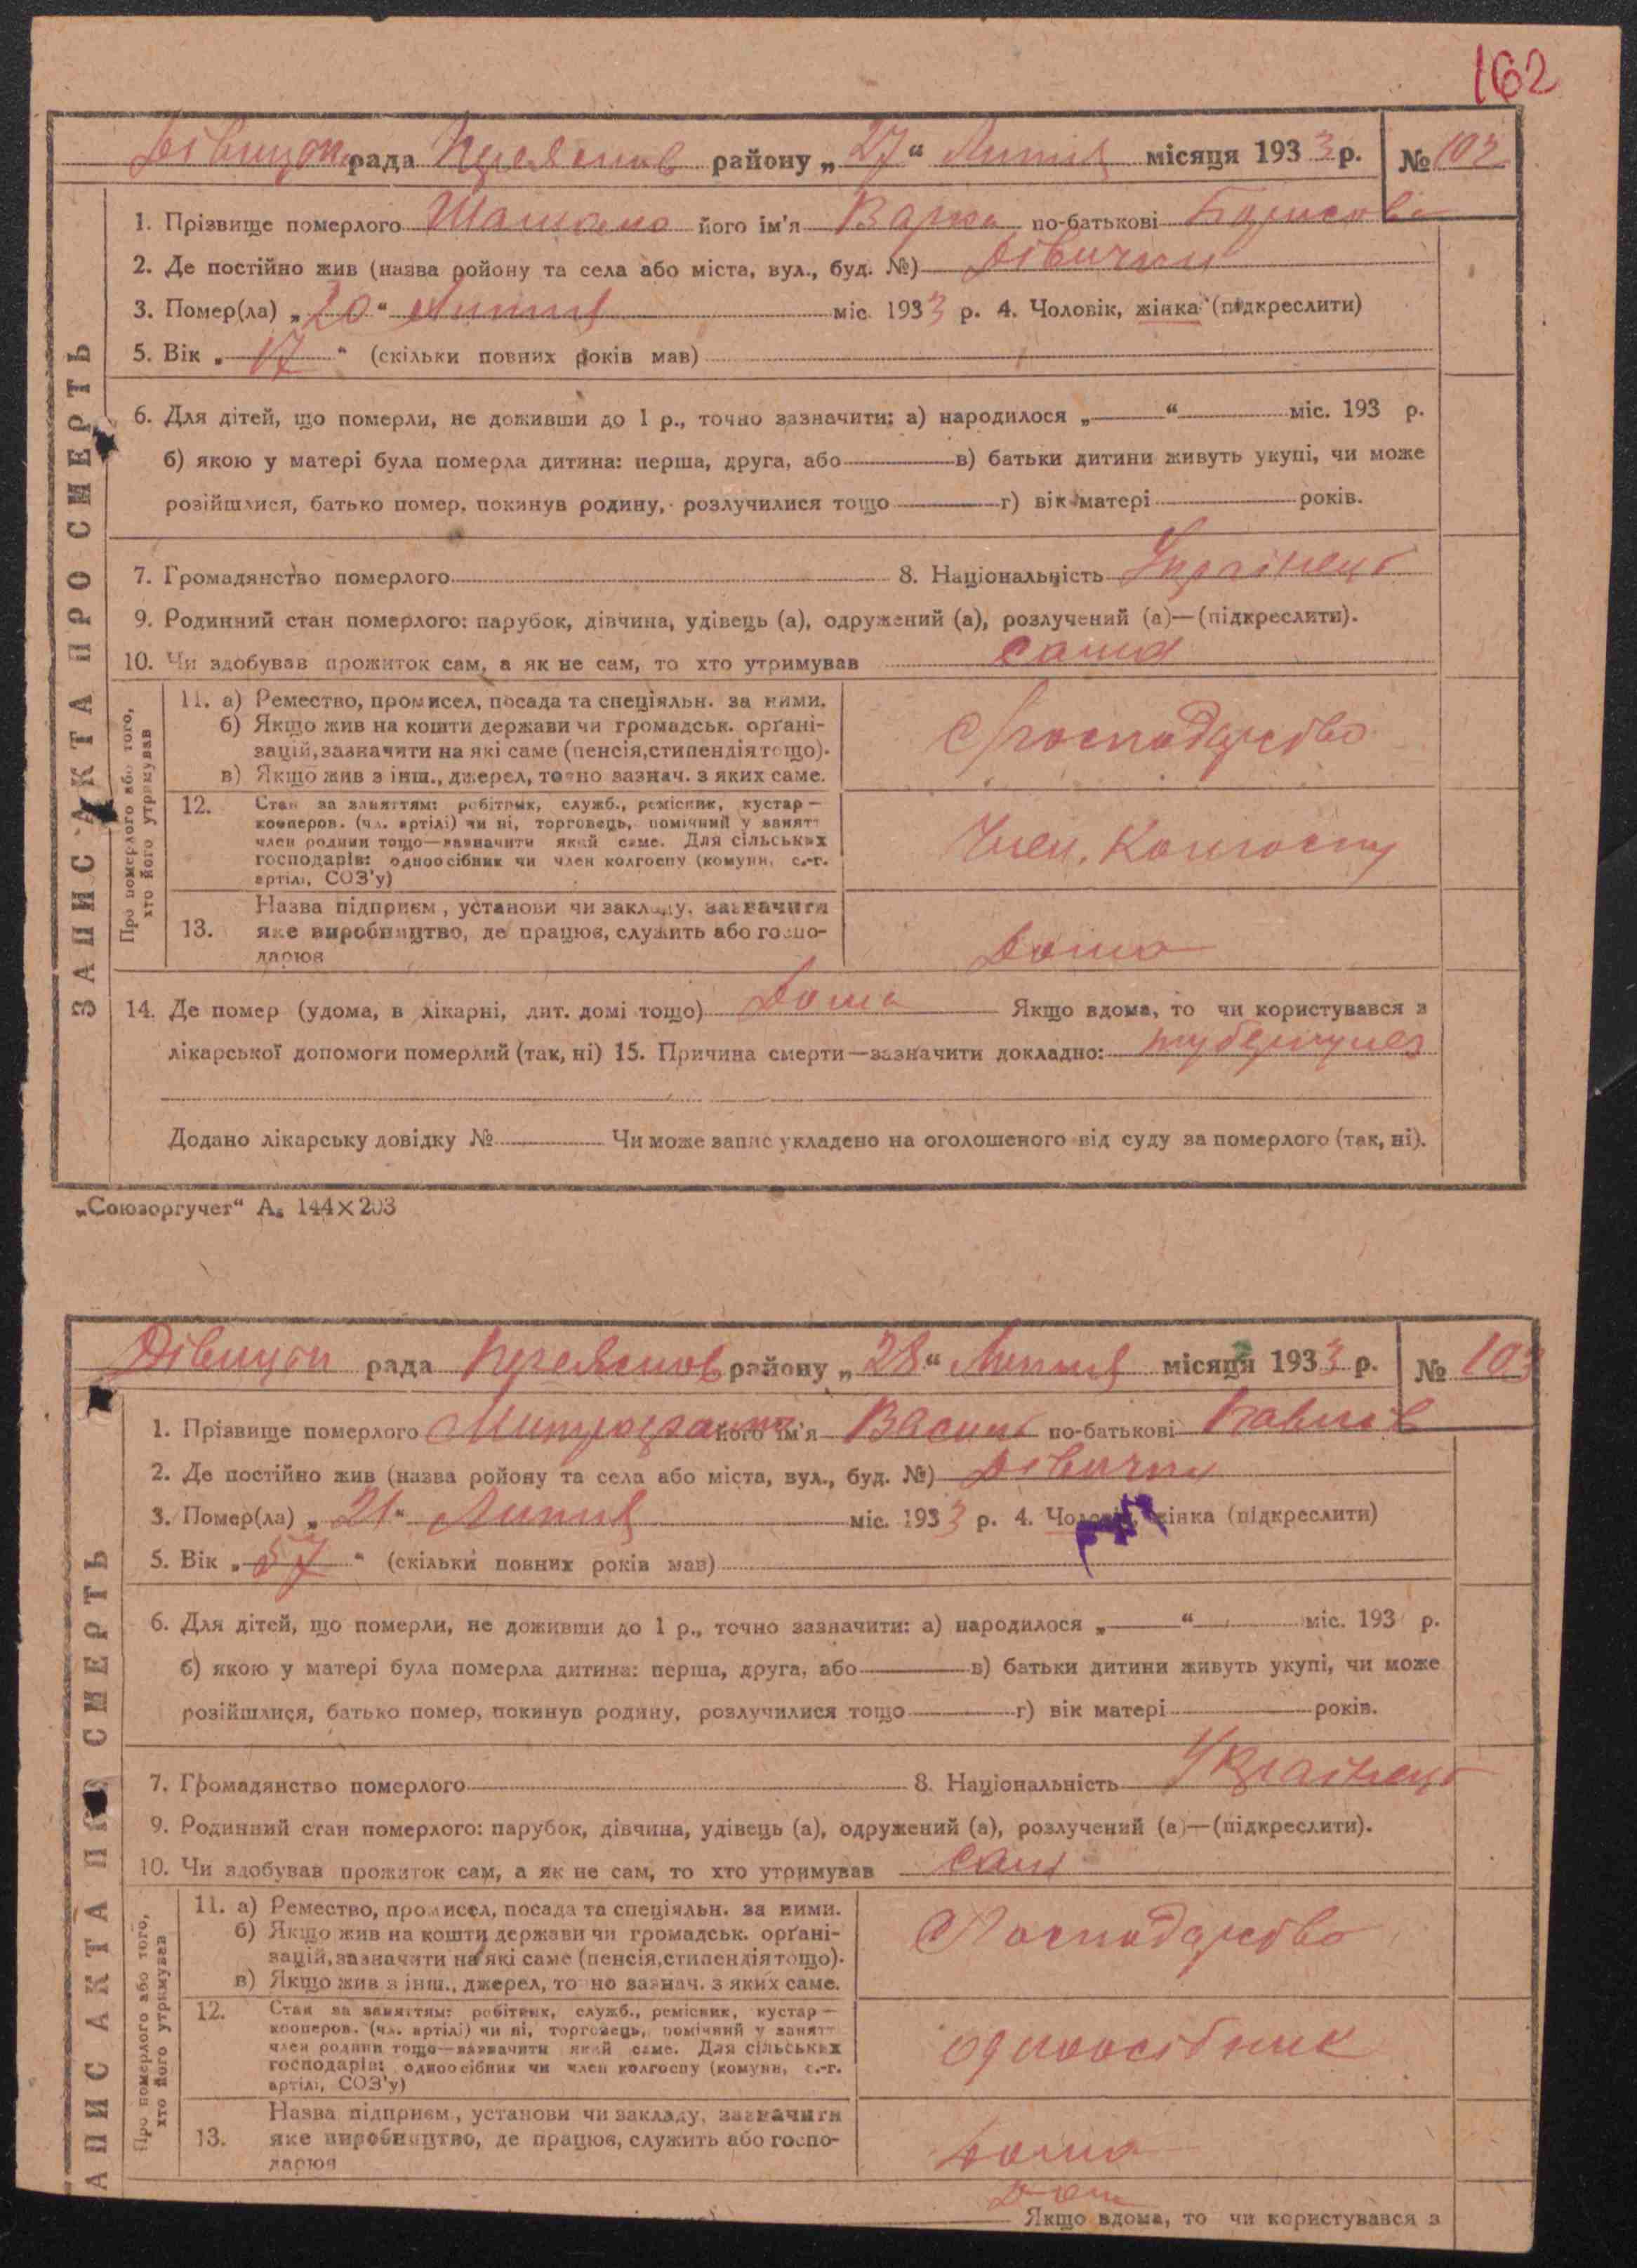 162
Дівицьк рада Переяслав району „27“ Липня місяця 1933 р. № 103
1. Прізвище померлого його ім'я Варка по-батькові Борисова
2. Де постійно жив (назва ройону та села або міста, вул., буд. №) Дівички
3. Помер(ла) „20“ Липня міс 1933 р. 4. Чоловік, жінка (підкреслити)
5. Вік „17“ (скільки повних років мав)
6. Для дітей, що померли, не доживши до 1 р., точно зазначити: а) народилося „ “ міс. 193 р.
б) якою у матері була померла дитина: перша, друга, або в) батьки дитини живуть укупі, чи може
розійшлися, батько помер, покинув родину, розлучилися тощо г) вік матері років.
7. Громадянство померлого 8. Національність Українець
9. Родинний стан померлого: парубок, дівчина, удівець (а), одружений (а), розлучений (а)—(підкреслити).
10. Чи здобував прожиток сам, а як не сам, то хто утримував сама
ЗАПИС АКТА ПРО СМЕРТЬ
Про померлого або того,
хто його утримував
11. а) Ремество, промисел, посада та спеціяльн. за ними.
б) Якщо жив на кошти держави чи громадськ. орґані-
зацій, зазначити на які саме (пенсія, стипендія тощо).
в) Якщо жив з інш., джерел, точно зазнач. з яких саме.
Господарство
12. Стан за заняттям: робітник, служб., ремісник, кустар—
кооперов. (чл. артілі) чи ні, торговець, помічний у занятт
член родини тощо—зазначити який саме. Для сільських
господарів: одноосібник чи член колгоспу (комуни, с.-г.
артілі, СОЗ'у)
Член. Колгоспу
Назва підприєм, установи чи закладу, зазначити
13. яке виробництво, де працює, служить або госпо-
дарює
Дома
14. Де помер (удома, в лікарні, дит. домі тощо) Дома Якщо вдома, то чи користувався з
лікарської допомоги померлий (так, ні) 15. Причина смерти—зазначити докладно: туберкульоз
Додано лікарську довідку № Чи може запис укладено на оголошеного від суду за померлого (так, ні).
„Союзоргучет“ А₅ 144×203
Дівицьк рада Переяслав району „28“ Липня місяця 1933 р. № 103
1. Прізвище померлого його ім'я Василь по-батькові Павлов
2. Де постійно жив (назва ройону та села або міста, вул., буд. №) Дівички
3. Помер(ла) „21“ Липня міс. 1933 р. 4. Чоловік, жінка (підкреслити)
5. Вік „57“ (скільки повних років мав)
6. Для дітей, що померли, не доживши до 1 р., точно зазначити: а) народилося „ “ міс. 193 р.
б) якою у матері була померла дитина: перша, друга, або в) батьки дитини живуть укупі, чи може
розійшлися, батько помер, покинув родину, розлучилися тощо г) вік матері років.
7. Громадянство померлого 8. Національність Українець
9. Родинний стан померлого: парубок, дівчина, удівець (а), одружений (а), розлучений (а)—(підкреслити).
10. Чи здобував прожиток сам, а як не сам, то хто утримував сам
АПИС АКТА ПРО СМЕРТЬ
Про померлого або того,
хто його утримував
11. а) Ремество, промисел, посада та спеціяльн. за ними.
б) Якщо жив на кошти держави чи громадськ. орґані-
зацій, зазначити на які саме (пенсія, стипендія тощо).
в) Якщо жив з інш., джерел, точно зазнач. з яких саме.
Господарство
12. Стан за заняттям: робітник, служб., ремісник, кустар—
кооперов. (чл. артілі) чи ні, торговець, помічний у занятт
член родини тощо—зазначити який саме. Для сільських
господарів: одноосібник чи член колгоспу (комуни, с.-г.
артілі, СОЗ'у)
одноосібник
Назва підприєм, установи чи закладу, зазначити
13. яке виробництво, де працює, служить або госпо-
дарює
Дома
Дом Якщо вдома, то чи користувався з